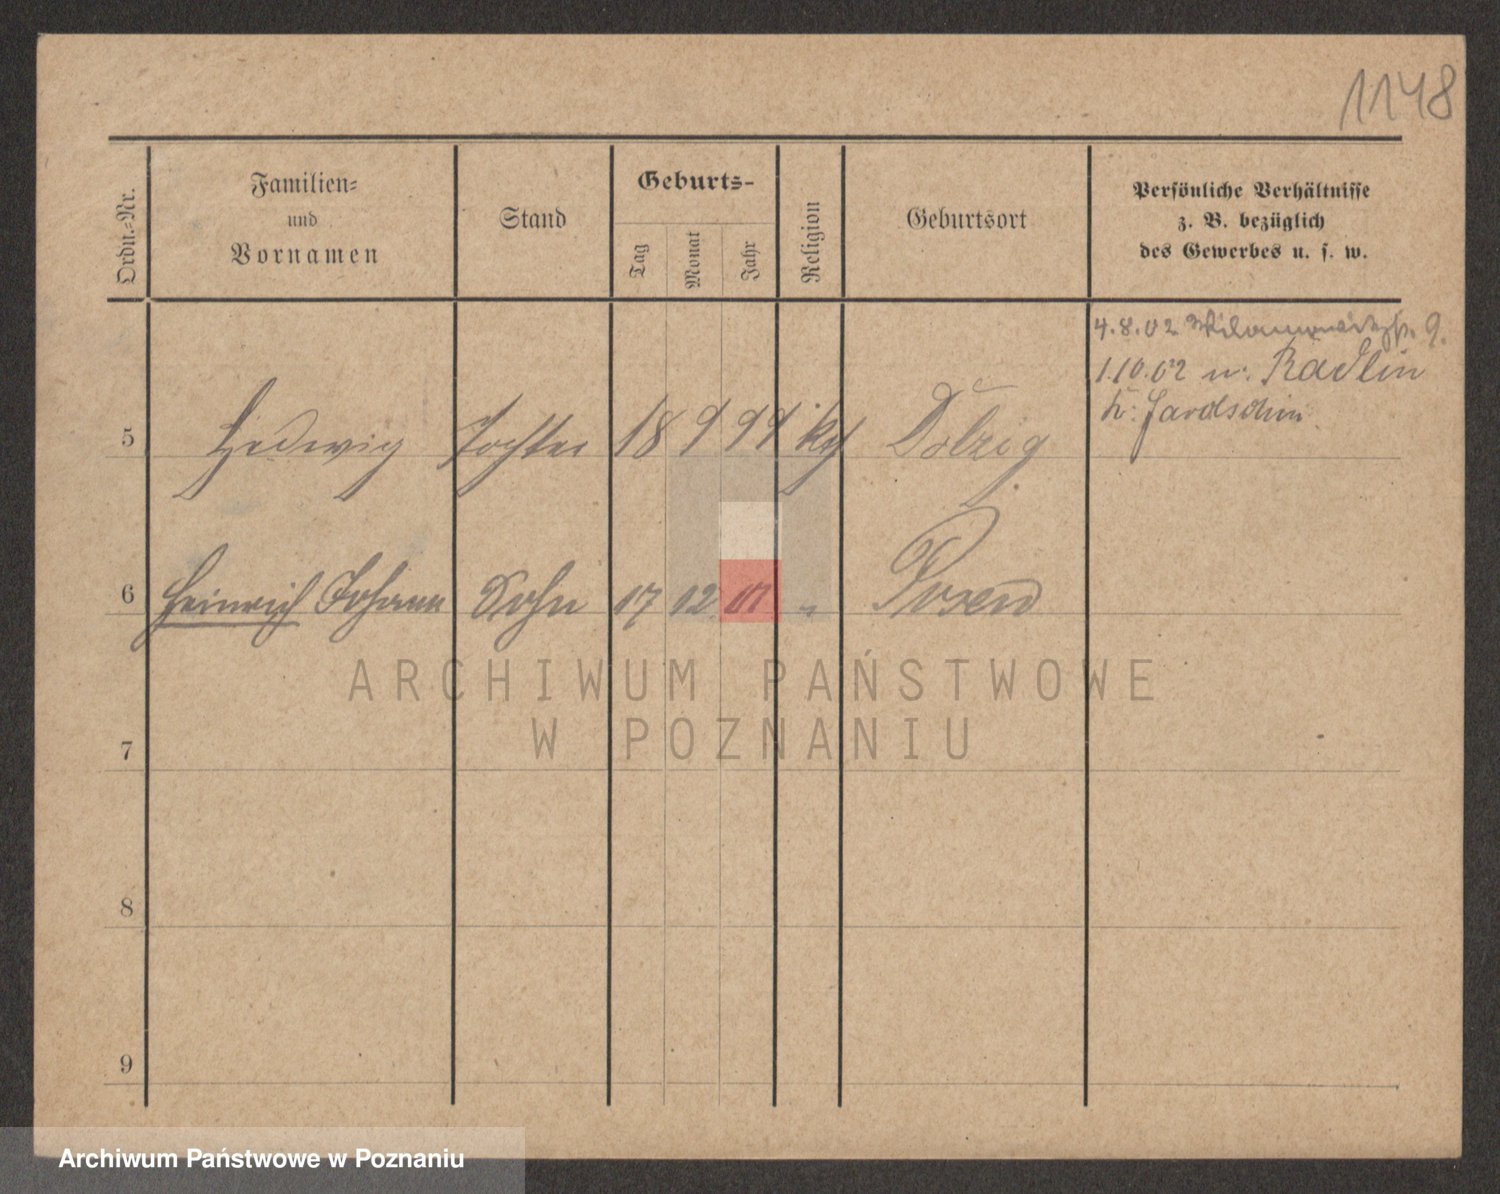 1148
Ordn.-Nr.
Familien-
und
Vornamen
Stand
Geburts-
Tag
Monat
Jahr
Religion
Geburtsort
Persönliche Verhältnisse
z. B. bezüglich
des Gewerbes u. s. w.
4.8.02 9.
1.10.02 n. Radlin
5 Hedwig Tochter 18 9 99 kth Dolzig
6 Heinrich Johann Sohn 17 12 01 " Posen
7
8
9
ARCHIWUM PAŃSTWOWE
W POZNANIU
Archiwum Państwowe w Poznaniu